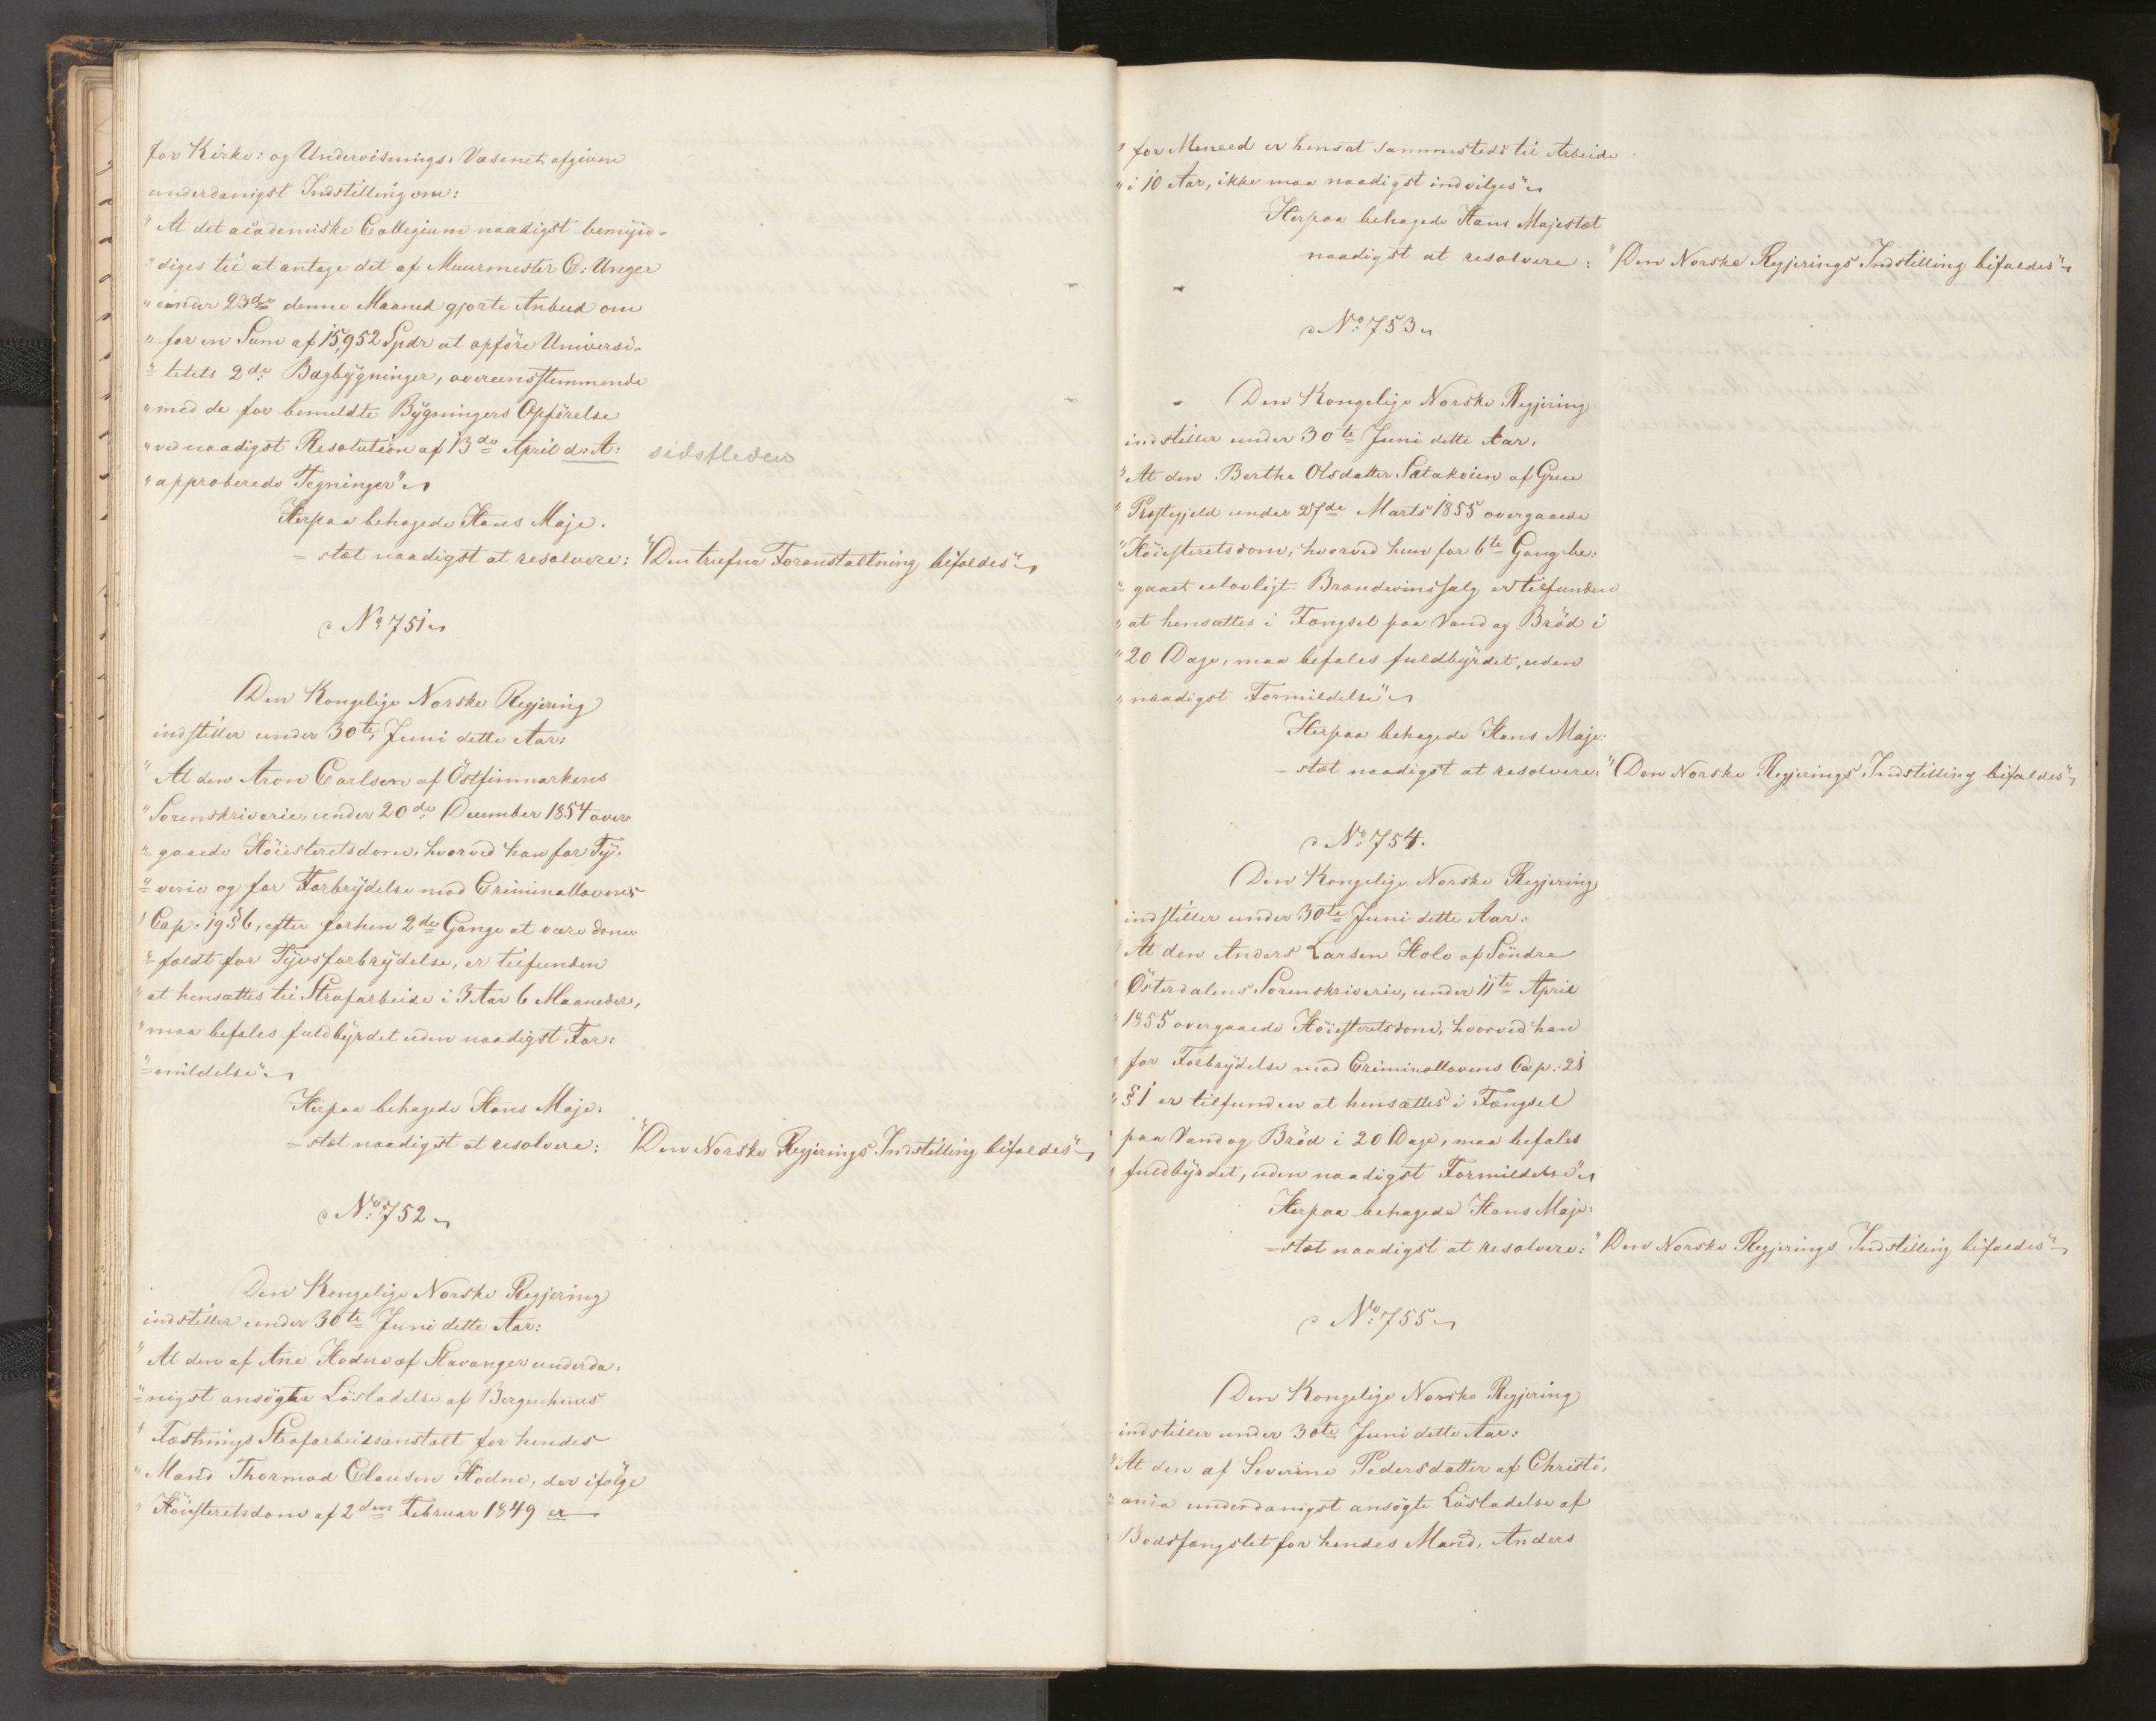 for Kirke: og Undervisnings: Væsenet afgiven
underdanigst Indstilling om:
" At det academiske Collegium naadigst bemyn-
" diges til at antage det af Muurmester G: Unger
" under 23de denne Maaned gjorte Anbud om
" for en Sum af 15,952 Spdr at opføre Universi-
" tetets 2de: Bagbygninger, overeensstemmende
" med de for bemeldte Bygningers Opförelse
" ved naadigst Resolution af 13de April d: A: sidstleden
" approberede Tegninger"
Herpaa behagede Hans Maje.
= stæt naadigst at resolvere: "Den trufne Foranstaltning bifaldes"
No 751
Den Kongelige Norske Regjering
indstiller under 30te Juni dette Aar:
" At den Aron Carlsen af Östfinmarkens
" Sorenskriverie, under 20de: December 1854 over
" gaaede Höiesteretsdom, hvorved han for Ty-
" verie og for Forbrydelse mod Criminallovens
" Cap. 19 § 6, efter forhen 2de Gange at være dom-
" fældt for Tyvsforbrydelse, er tilfunden
" at hensættes til Strafarbeide i 3 Aar 6 Maaneder,
" maa befales fuldbyrdet uden naadigst For:
" mildelse"
Herpaa behagede Hans Maje:
= stæt naadigst at resolvere: "Den Norske Regjerings Indstilling bifaldes"
No: 752
Den Kongelige Norske Regjering
indstiller under 30te Juni dette Aar:
" At den af Ane Hodne af Stavanger underda:
" nigst ansøgte Lösladelse af Bergenhuus
" Fæstnings Strafarbeidsanstalt for hendes
" Mand Thormod Clausen Hodne, der ifølge
" Höiesteretsdom af 2den Februar 1849 er
" for Meneed er hensat sammesteds til Arbeide
" i 10 Aar, ikke maa naadigst indvilges"
Herpaa behagede Hans Majestæt
naadigst at resolvere: "Den Norske Regjerings Indstilling bifaldes"
No: 753
Den Kongelige Norske Regjering
indstiller under 30te Juni dette Aar.
" At den Berthe Olsdatter Satakoien af Grue
" Præstegjeld under 27de Marts 1855 overgaaede
" Höiesteretsdom, hvorved hun for 6te Gang be:
" gaaet ulovligt Brændeviinssalg er tilfunden
" at hensættes i Fængsel paa Vand og Bröd i
" 20 Dage, maa befales fuldbyrdet, uden
" naadigst Formildelse"
Herpaa behagede Hans Maje:
= stæt naadigst at resolvere: "Den Norske Regjerings Indstilling bifaldes"
No: 754.
Den Kongelige Norske Regjering
indstiller under 30te Juni dette Aar:
" At den Anders Larsen Holo af Söndre
" Österdalens Sorenskriverie, under 11te April
" 1855 overgaaede Höiesteretsdom, hvorved han
" for Forbrydelse mod Criminallovens Cap: 21
" § 1 er tilfunden at hensættes i Fængsel
" paa Vand og Bröd i 20 Dage, maa befales
" fuldbyrdet, uden naadigst Formildelse"
Herpaa behagede Hans Maje:
= stæt naadigst at resolvere: "Den Norske Regjerings Indstilling bifaldes"
No: 755
Den Kongelige Norske Regjering
indstiller under 30te Juni dette Aar:
" At den af Severine Pedersdatter af Christi,
" ania underdanigst ansögte Lösladelse af
" Bodsfængslet for hendes Mand, Anders